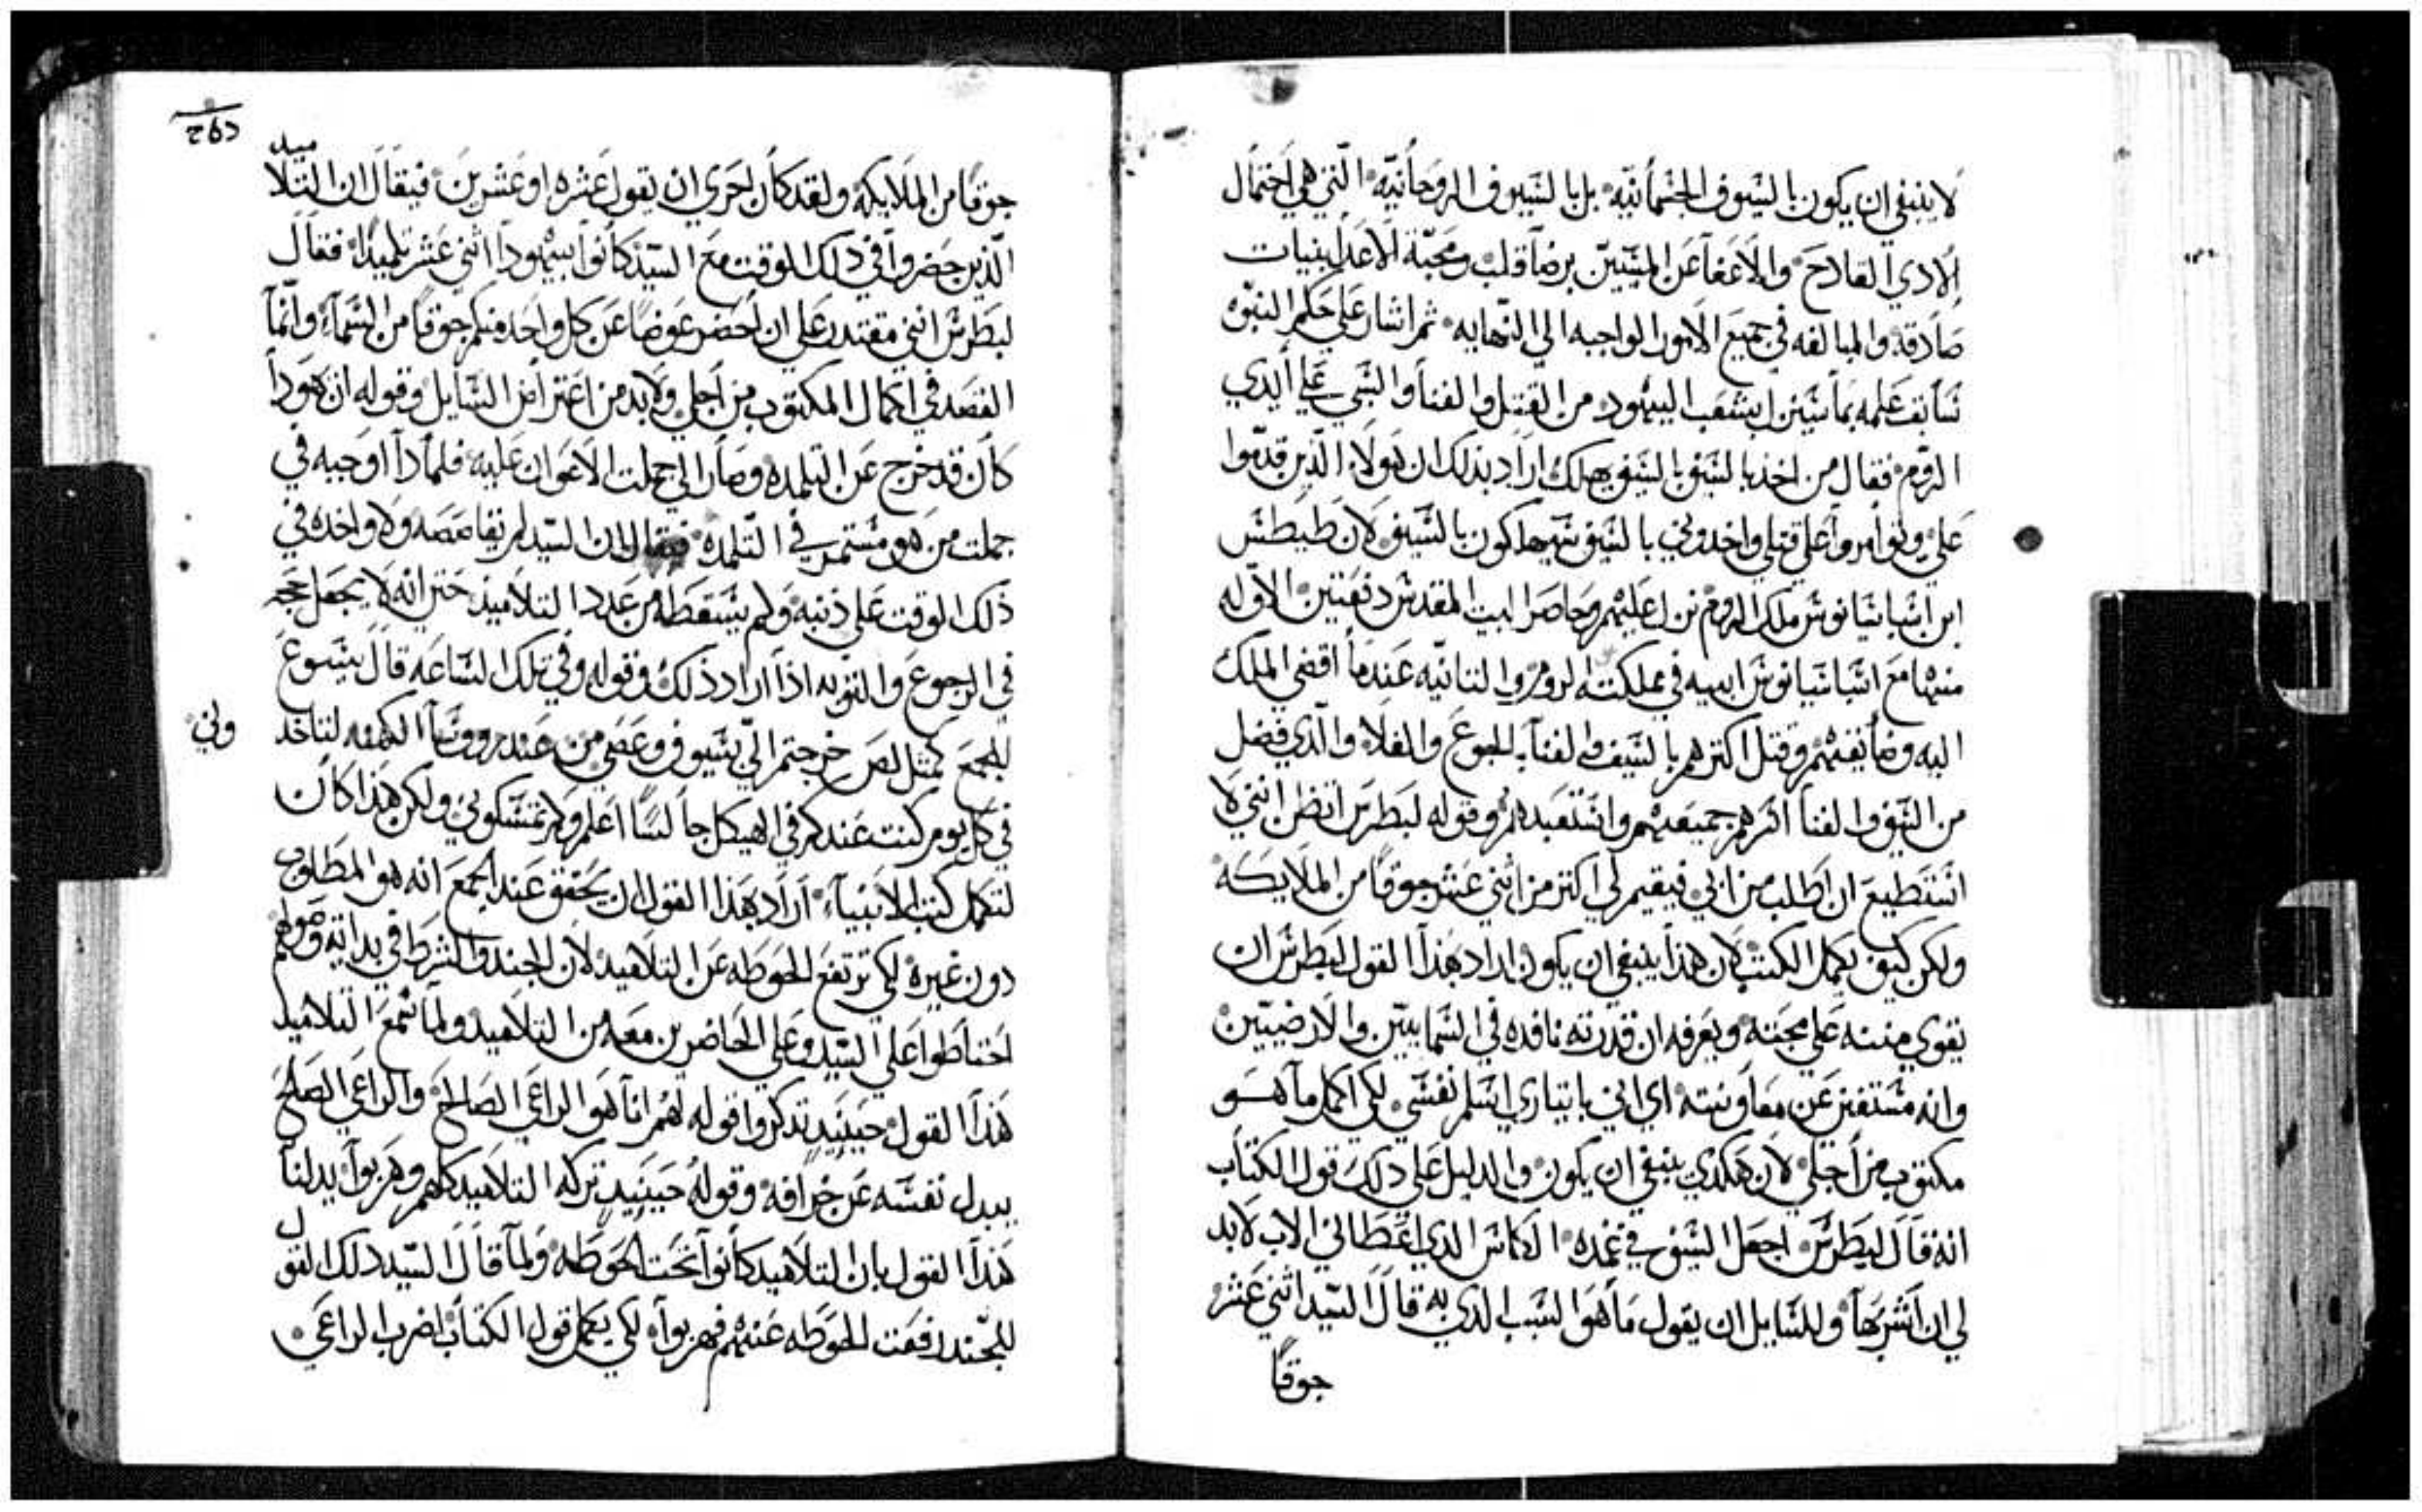 لا ينبغي ان يكون بالسيوف الجسمانيه بل بالسيوف الروحانيه التي هي احتمال
الادي القادح والاعفا عن المسيين برضا قلب ومحبة الاعدا بنيات
صادقه والمبالغه في جميع الامور الواجبه الي النهايه ثم اشار علي حكم النبوه
سابق علمه بما سينزل بشعب اليهود من القتل والفنا والسبي علي ايدي
الروم فقال من اخذ بالسيف بالسيف يهلك اراد بذلك ان هولاء الذين قدموا
علي وتوامروا علي قتلي واخدوني بالسيف سيهلكون بالسيف لان طيطس
ابن اسباسيانوس ملك الروم نزل عليهم وحاصر البيت المقدس دفعتين الاوله
منهما مع اسباسيانوس ابيه في مملكته الروم والتانيه عندما افضي الملك
اليه وضايقهم وقتل اكترهم بالسيف والفنا بالجوع والغلا والذي فضل
من السيف والفنا اسرهم جميعهم واستعبدهم وقوله لبطرس اتظن انني لا
استطيع ان اطلب من ابي فيقيم لي اكتر من اثني عشر جوقا من الملايكه
ولكن كيف تكمل الكتب لان هذا ينبغي ان يكون اراد بهذا القول لبطرس ان
يقوي منته علي محبته ويعرفه ان قدرته نافده في السماييين والارضيين
وانه مستغني عن معاونته اي اني باختياري اسلم نفسي لكي اكمل ما هو
مكتوب من اجلي لان هكدي ينبغي ان يكون والدليل علي ذلك قول الكتاب
انه قال لبطرس اجعل السيف في غمده الكاس الدي اعطاني الاب لابد
لي ان اشربها وللسايل ان يقول ما هو السبب الدي به قال السيد اثني عشر
جوقا
جوقا من الملايكه ولقد كان احري ان يقول عشره او عشرين فيقال ان التلاميد
الذين حضروا في ذلك الوقت مع السيد كانوا بيهودا اثني عشر تلميدا فقال
لبطرس انني مقتدر علي ان احضر عوضا عن كل واحد منكم جوقا من السماء وانما
القصد في اكمال المكتوب من اجلي ولابد من اعتراض السايل وقوله ان يهودا
كان قد خرج عن التلمده وصار الي جملت الاعوان عليه فلمادا اوجبه في
جملت من هو مستمر في التلمده فيقال ان السيد لم يقاصصه ولا واخده في
ذلك الوقت علي ذنبه ولم يسقطه من عدد التلاميذ حتي انه لا يجعل حجه
في الرجوع والتوبه اذا اراد ذلك وقوله وفي تلك الساعه قال يسوع
للجمع كمتل لص خرجتم الي بسيوف وعصي من عند روسا الكهنه لتاخد
وني
في كل يوم كنت عندكم في الهيكل جالسا اعلم ولم تمسكوني ولكن هذا كان
لتكمل كتب الانبياء اراد بهذا القول ان يحقق عند الجمع انه هو المطلوب
دون غيره لكي ترتفع الحوطه عن التلاميد لان الجند والشرط في بداية وصولهم
احتاطوا علي السيد وعلي الحاضرين معه من التلاميد ولما سمع التلاميد
هذا القول حينيد تدكروا قوله لهم انا هو الراعي الصالح والراعي الصالح
يبدل نفسه عن خرافه وقوله حينيد تركه التلاميد كلهم وهربوا يدلنا
هذا القول بان التلاميد كانوا تحت الحوطه ولما قال السيد دلك القول
للجند رفعت الحوطه عنهم فهربوا لكي يكمل قول الكتاب اضرب الراعي